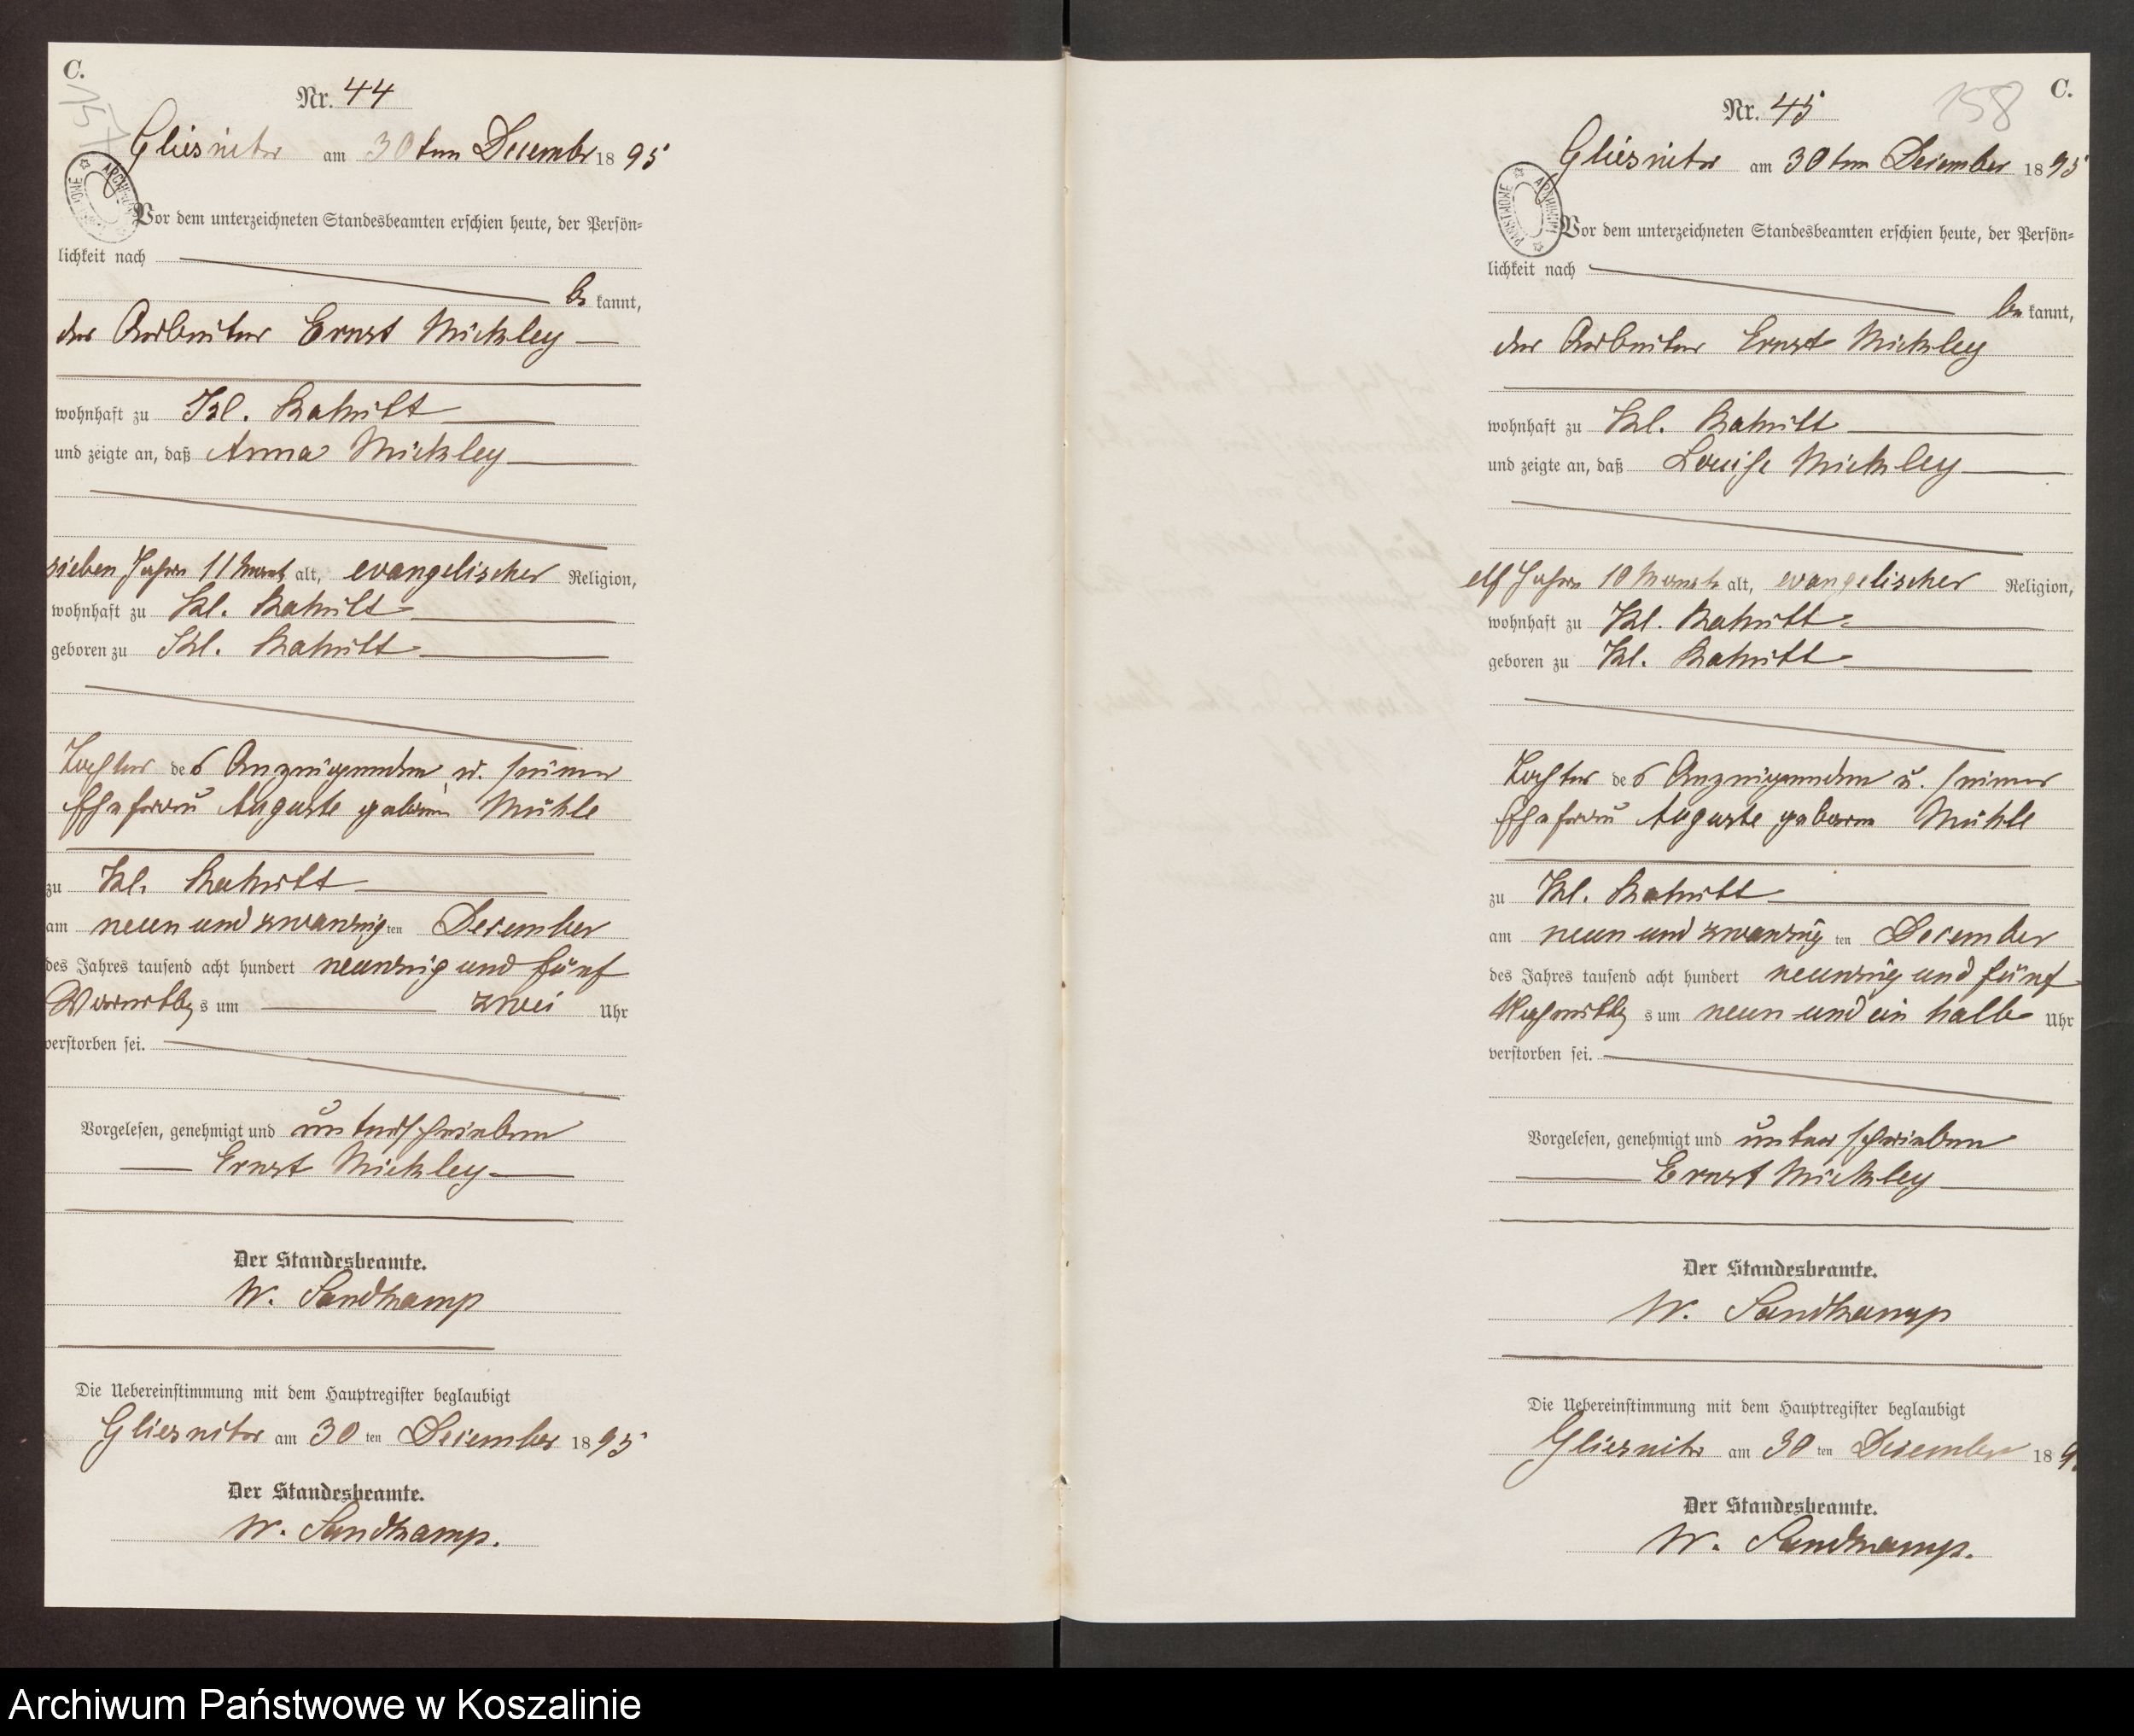 C.
157
Nr. 44
Gliesnitz am 30ten December 1895
Vor dem unterzeichneten Standesbeamten erschien heute, der Persön=
lichkeit nach
be kannt,
der Arbeiter Ernst Mickley
wohnhaft zu Kl.
und zeigte an, daß Anna Mickley
sieben Jahre 11 Monat alt, evangelischer Religion,
wohnhaft zu Kl.
geboren zu Kl.
Tochter des Anzeigenden u. seiner
Ehefrau Auguste geborne Mühle
zu Kl.
am neun und zwanzig ten December
des Jahres tausend acht hundert neunzig und fünf
Vormittags um zwei Uhr
verstorben sei.
Vorgelesen, genehmigt und unterschrieben
Ernst Mickley
Der Standesbeamte.
W. Sandkamp
Die Uebereinstimmung mit dem Hauptregister beglaubigt
Gliesnitz am 30 ten December 1895
Der Standesbeamte.
W. Sandkamp.
158
C.
Nr. 45
Gliesnitz am 30ten December 1895
Vor dem unterzeichneten Standesbeamten erschien heute, der Persön=
lichkeit nach
be kannt,
der Arbeiter Ernst Mickley
wohnhaft zu Kl.
und zeigte an, daß Louise Mickley
elf Jahre 10 Monate alt, evangelischer Religion,
wohnhaft zu Kl.
geboren zu Kl.
Tochter des Anzeigenden u. seiner
Ehefrau Auguste geborne Mühle
zu Kl.
am neun und zwanzig ten December
des Jahres tausend acht hundert neunzig und fünf
Nachmittags um neun und ein halb Uhr
verstorben sei.
Vorgelesen, genehmigt und unterschrieben
Ernst Mickley
Der Standesbeamte.
W. Sandkamp
Die Uebereinstimmung mit dem Hauptregister beglaubigt
Gliesnitz am 30 ten December 189
Der Standesbeamte.
W. Sandkamp.
Archiwum Państwowe w Koszalinie